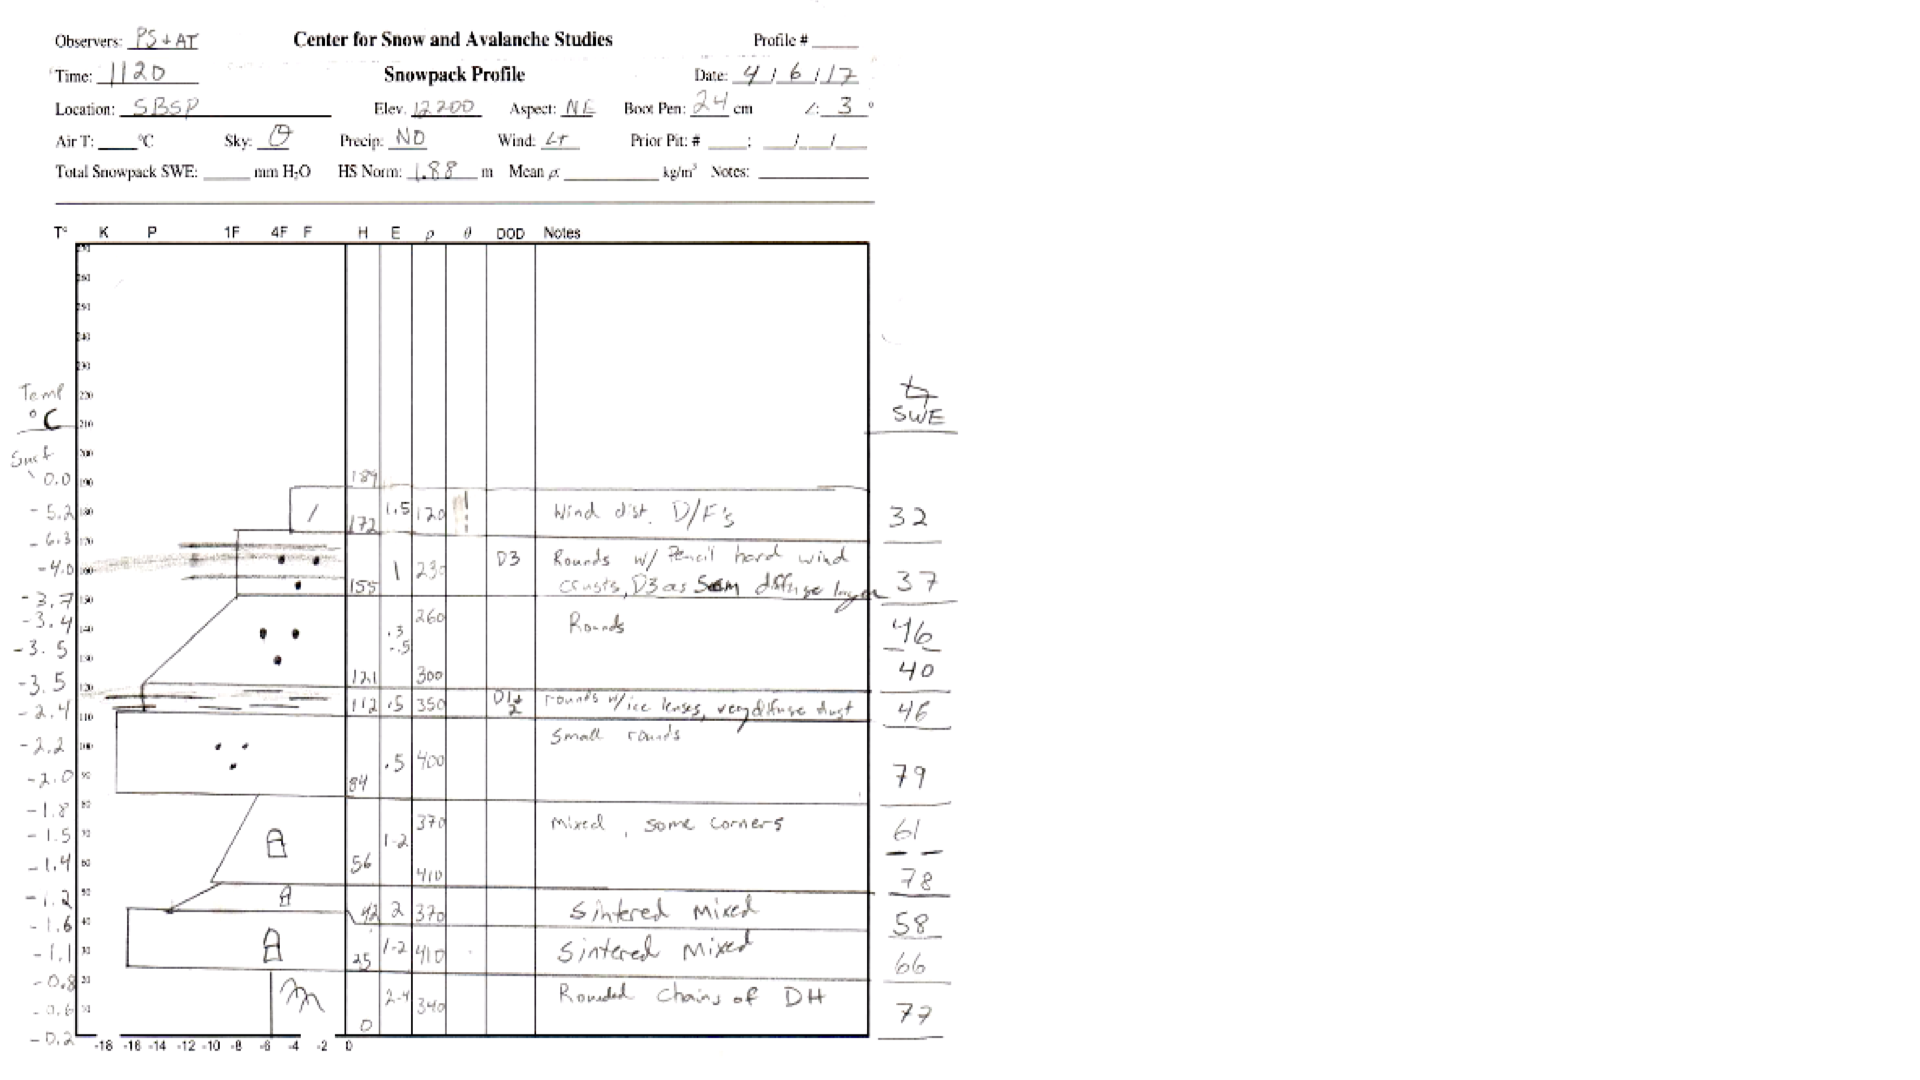 Observers: PS + AT Center for Snow and Avalanche Studies Profile #
Time: 1120 Snowpack Profile Date: 4 / 6 / 17
Location: SBSP Elev. 12200 Aspect: NE Boot Pen: 24 cm ∠: 3 °
Air T: °C Sky: Precip: ND Wind: LT Prior Pit: # ; / /
Total Snowpack SWE: mm H₂O HS Norm: 1.88 m Mean ρ: kg/m³ Notes:
T° K P 1F 4F F H E ρ θ DOD Notes
270
260
250
240
230
Temp 220
°C 210 SWE
Surf 200
0.0 190 189
-5.2 180 / 172 1.5 120 Wind dist. D/F's 32
-6.3 170
-4.0 160 155 1 230 D3 Rounds w/ Pencil hard wind
crusts, D3 as 5cm diffuse layer 37
-3.7 150
-3.4 140 .3 260 Rounds 46
-3.5 130 -.5
-3.5 120 121 300 40
-2.4 110 112 .5 350 D1+2 rounds w/ice lenses, very diffuse dust 46
-2.2 100 Small rounds
-2.0 90 84 .5 400 79
-1.8 80 370 Mixed, some corners 61
-1.5 70 1-2
-1.4 60 56 410 78
-1.2 50 42 2 370 Sintered Mixed 58
-1.6 40
-1.1 30 25 1-2 410 Sintered Mixed 66
-0.8 20
-0.6 10 2-4 340 Rounded Chains of DH 77
-0.2 0
-18 -16 -14 -12 -10 -8 -6 -4 -2 0